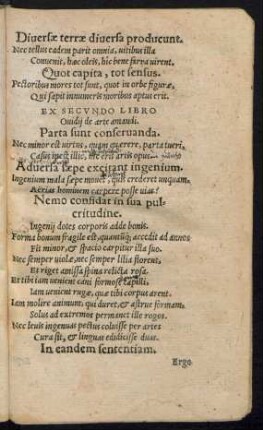 Diuersæ terræ diuersa producunt.
Nec tellus eadem parit omnia, uitibus illa
Conuenit, hæc oleis, hic bene farra uirent.
Quot capita, tot sensus.
Pectoribus mores tot sunt, quot in orbe figuræ,
Qui sapit innumeris moribus aptus erit.
EX SECVNDO LIBRO
Ouidij de arte amandi.
Parta sunt conseruanda.
Nec minor est uirtus, quàm quærere, parta tueri,
Casus inest illic, hic erit artis opus.
Aduersa sæpe excitant ingenium.
Ingenium mala sæpe mouet, quis crederet unquam,
Aërias hominem carpere posse uias?
Nemo confidat in sua pul-
critudine.
Ingenij dotes corporis adde bonis.
Forma bonum fragile est, quantũq; accedit ad annos
Fit minor, & spacio carpitur illa suo.
Nec semper uiolæ, nec semper lilia florent,
Et riget amissa spina relicta rosa.
Et tibi iam uenient cani formose capilli,
Iam uenient rugæ, quæ tibi corpus arent.
Iam molire animum, qui duret, & astrue formam,
Solus ad extremos permanet ille rogos.
Nec leuis ingenuas pectus coluisse per artes
Cura sit, & linguas edidicisse duas.
In eandem sententiam.
Ergo